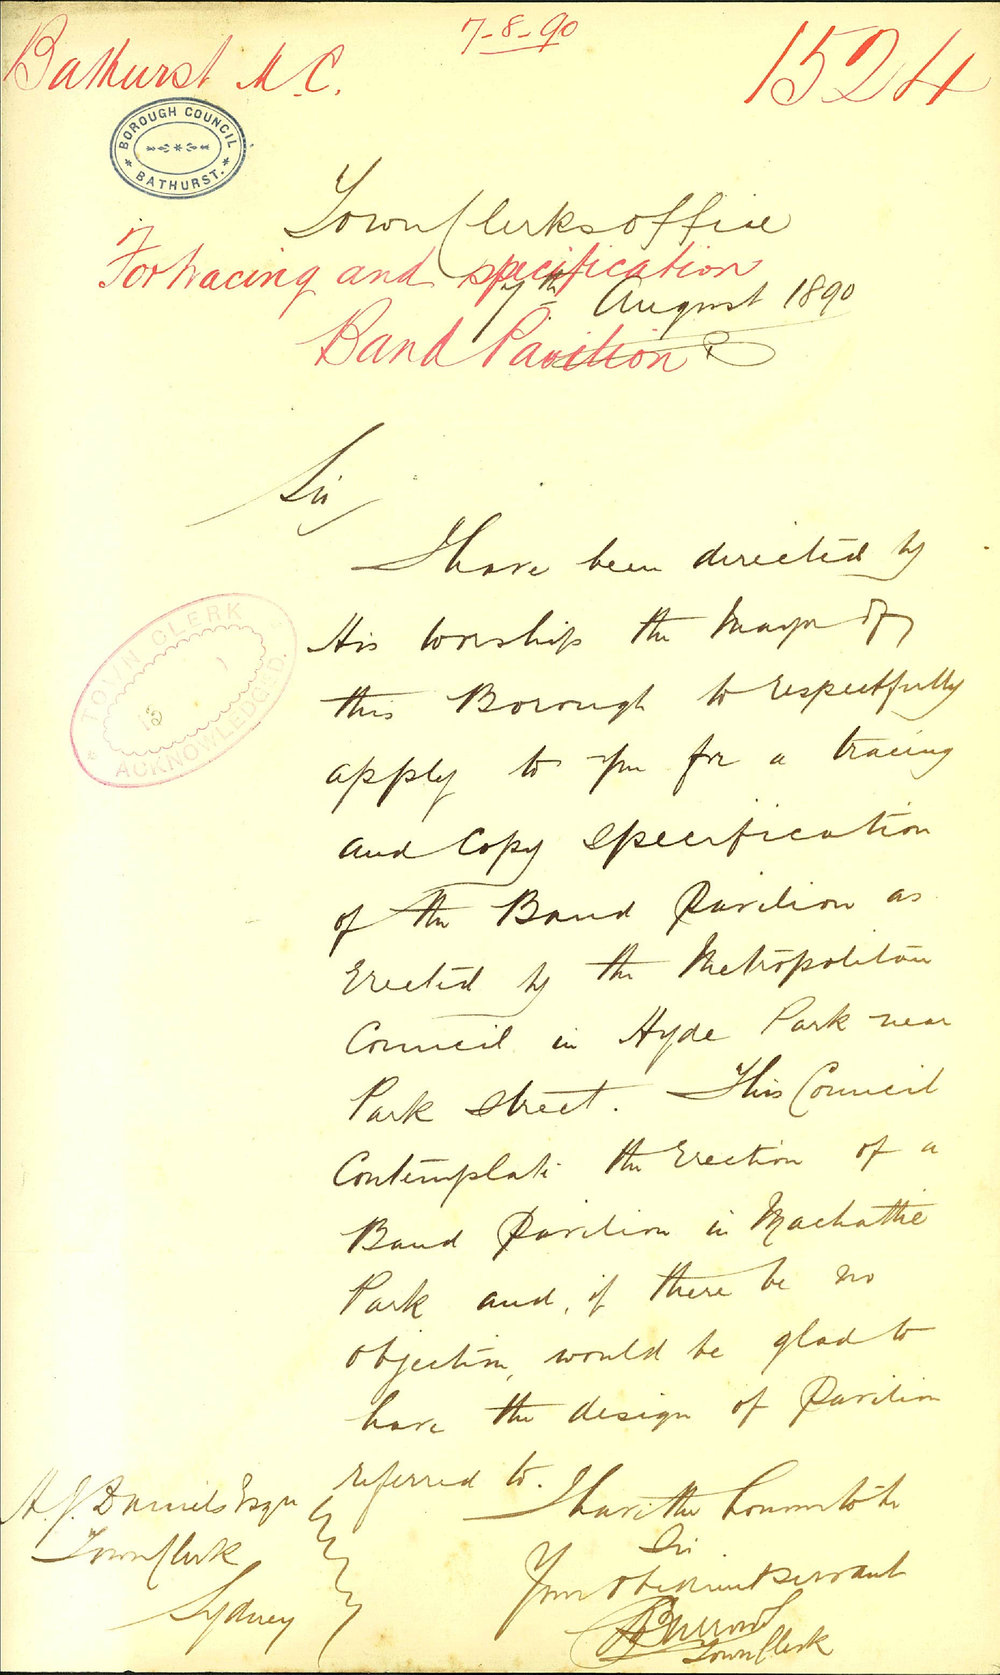 7-8-90
Bathurst M.C.
1524
BOROUGH COUNCIL
BATHURST.
Town Clerks office
For tracing and specification
7th August 1890
Band Pavilion
Sir
I have been directed by
His worship the Mayor of
this Borough to respectfully
apply to you for a tracing
and Copy Specification
of the Band Pavilion as
Erected by the Metropolitan
Council in Hyde Park near
Park Street. This Council
Contemplate the Erection of a
Band Pavilion in Machattie
Park and, if there be no
objection, would be glad to
have the design of Pavilion
referred to.
I have the honor to be
Sir
Your obedient servant
Town Clerk
TOWN CLERK
ACKNOWLEDGED.
H. J. Daniels Esqre
Town Clerk
Sydney